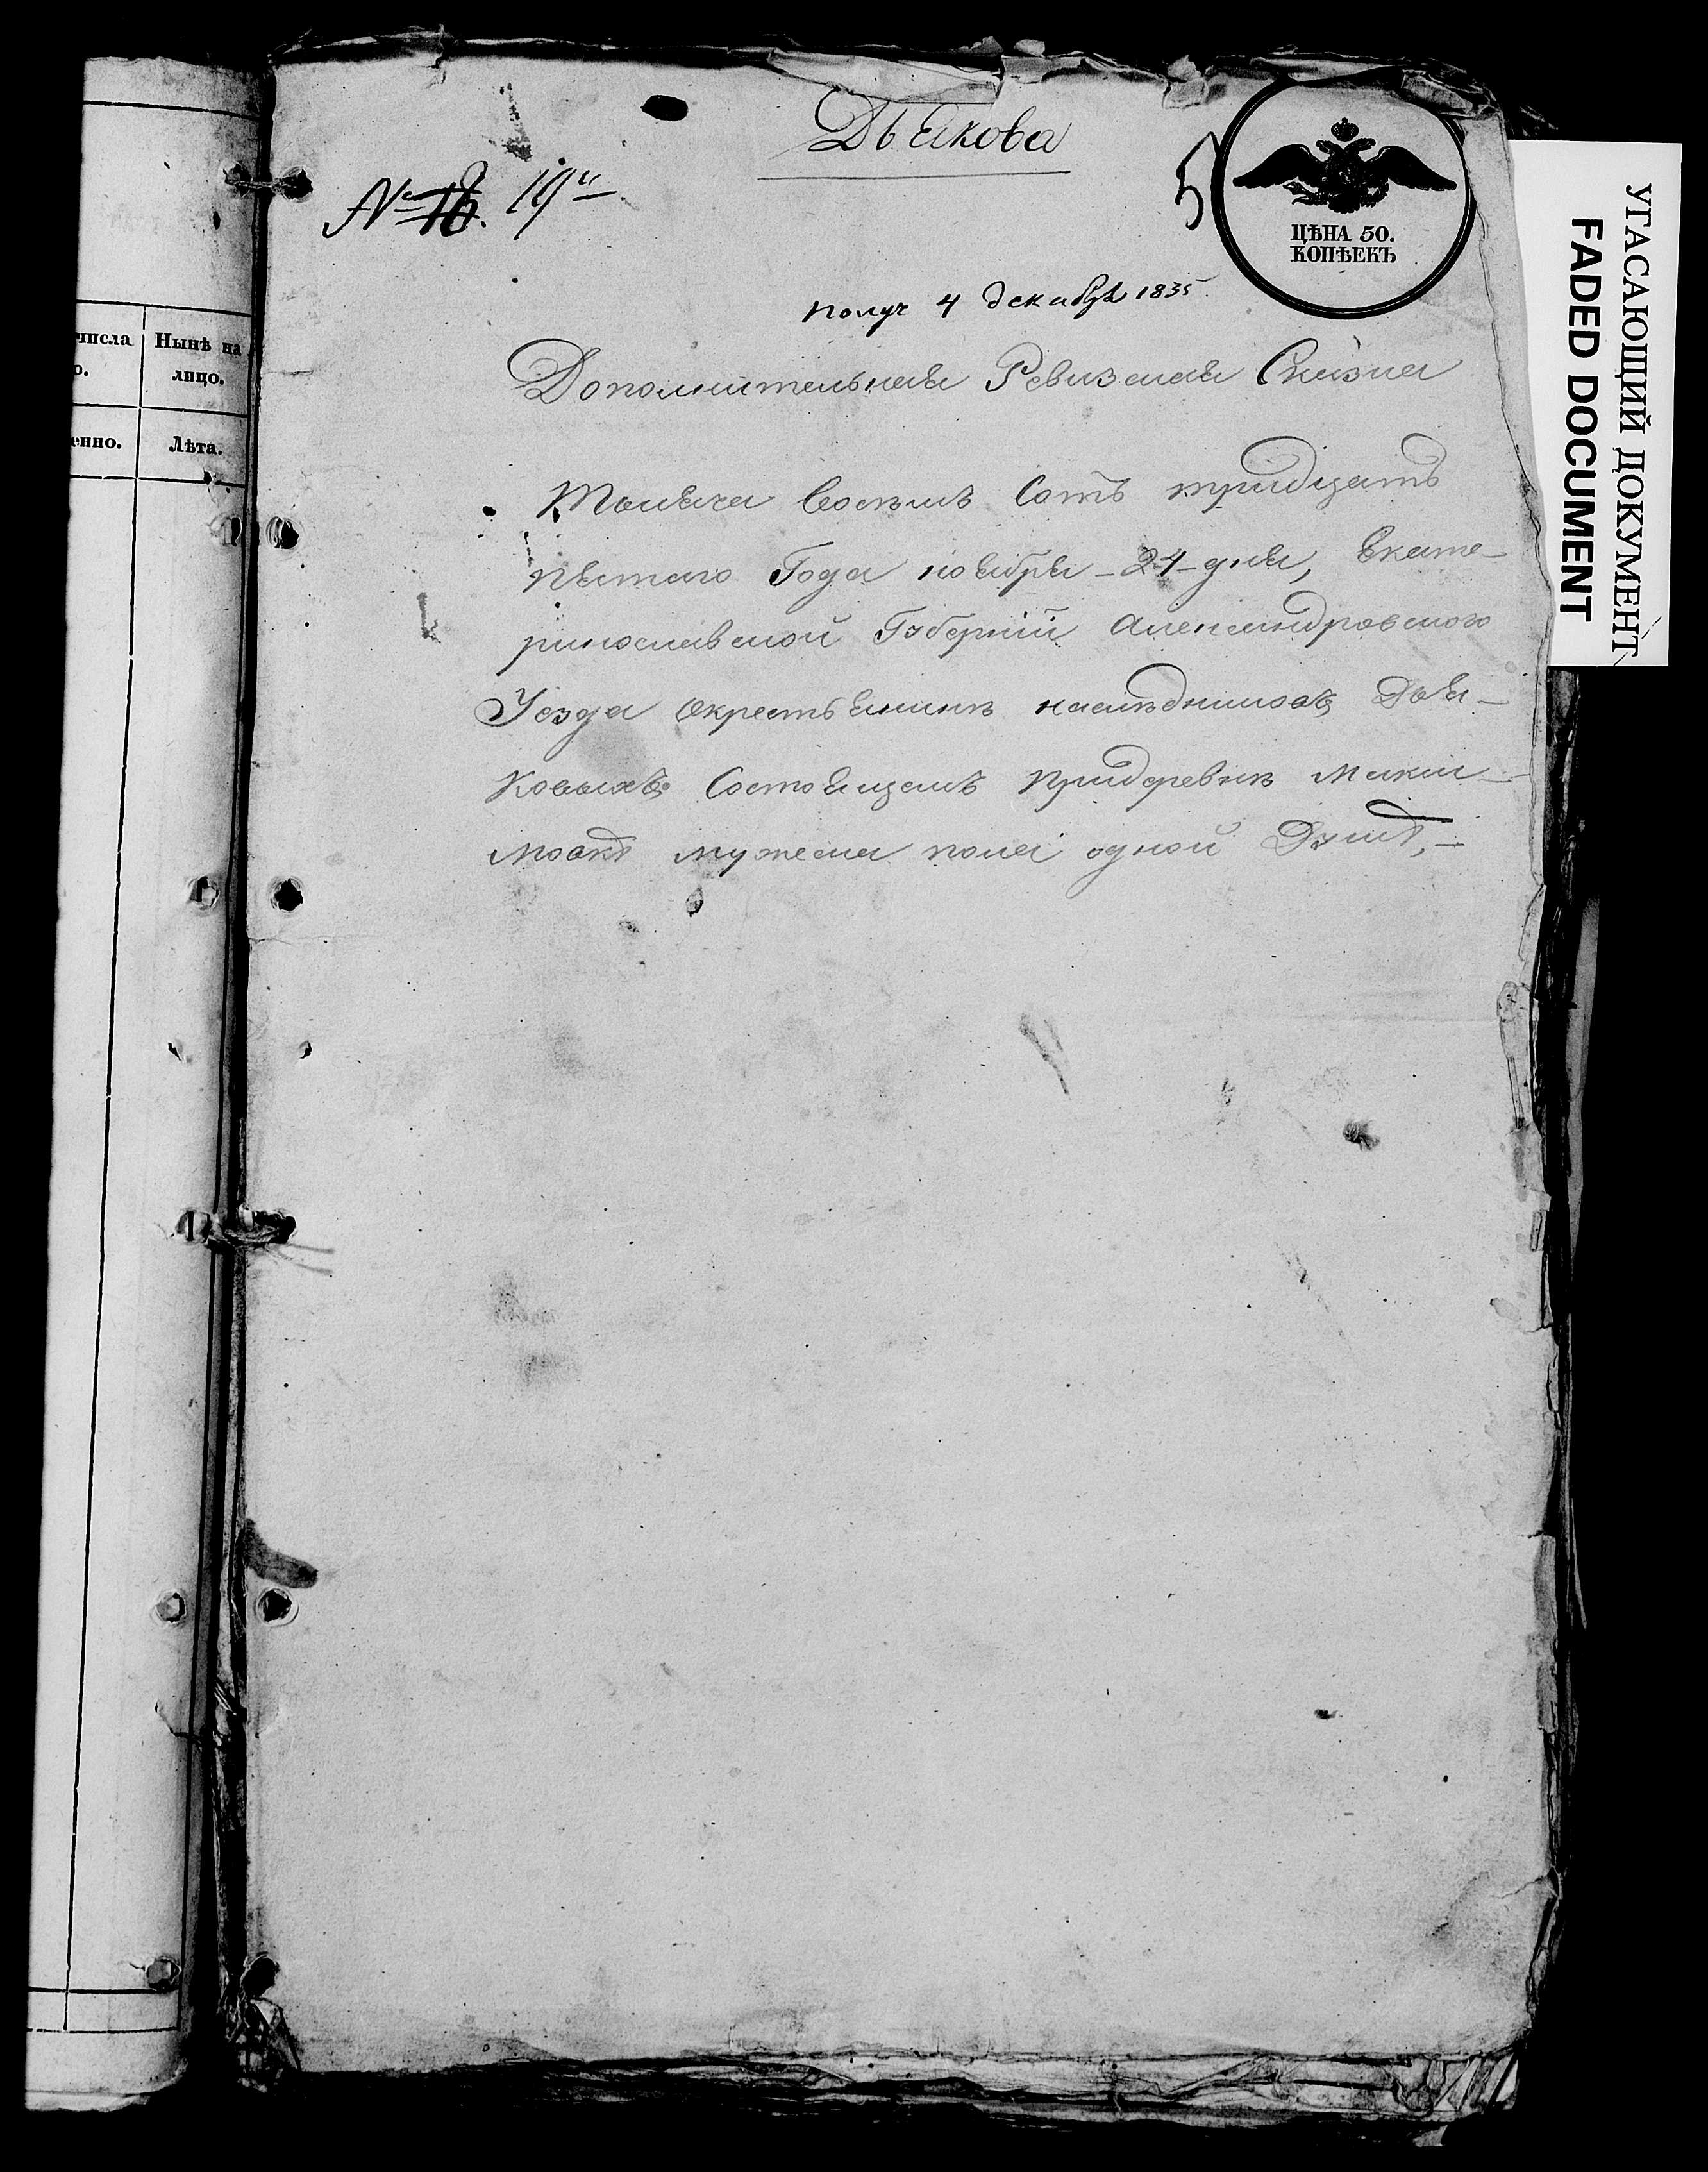 Дьякова
№ 18. 19й
5
ЦѢНА 50.
КОПѢЕКЪ
получ 4 декабря 1835
Дополнительная Ревизская Сказка
Тысяча Восемь Сотъ тридцать
пятаго Года ноября 21 дня, Екате-
ринославской Губернии Александровского
Уезда окрестьянинѣ наследниковъ Дья-
ковыхъ Состоящемъ придеревнѣ Маки-
мовкѣ мужеска пола одной Душѣ,
числа
о.
Нынѣ на
лицо.
енно.
Лѣта.
УГАСАЮЩИЙ ДОКУМЕНТ
FADED DOCUMENT